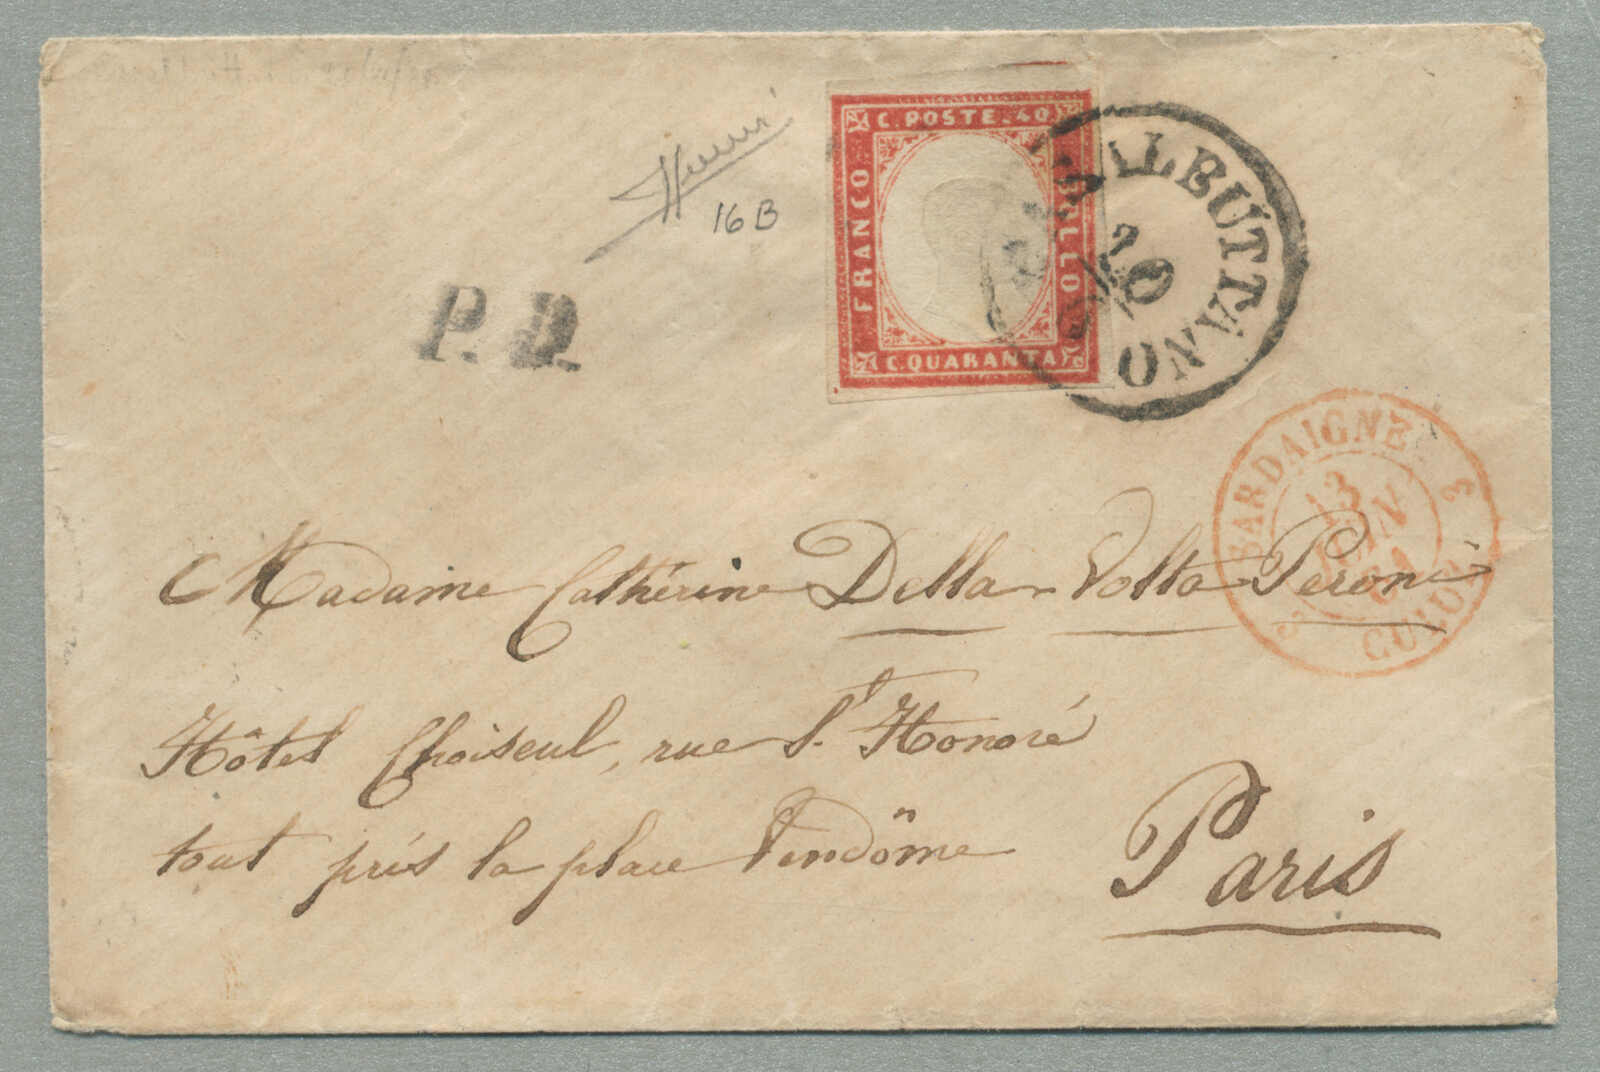 C. POSTE. 40
FRANCO
BOLLO
C. QUARANTA
CASALBUTTANO
10
16 B
P. D.
SARDAIGNE
3
13
JUIN
61
CULOZ
Madame Cathérine Della-Volta Peroni
Hôtel Choiseul, rue St. Honoré
tout près la place Vendôme
Paris